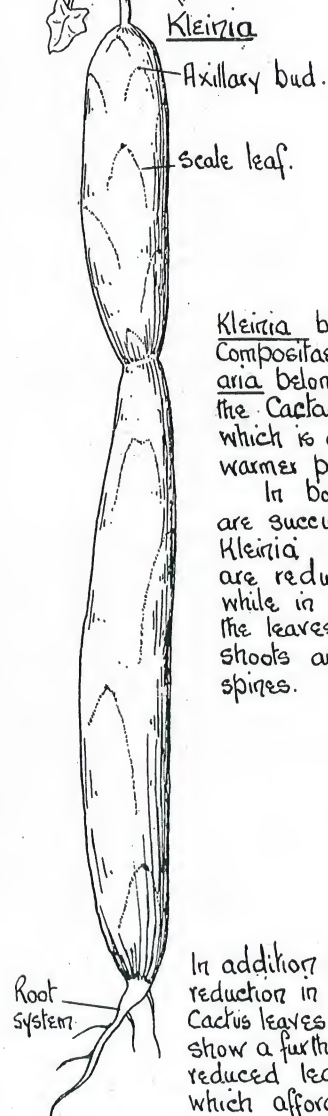 Kleinia
Axillary bud.
Scale leaf.
Kleinia b
Compositae
aria belon
the Cacta
which is
warmer p
In bo
are succu
Kleinia
are redu
while in
the leaves
shoots a
spines.
Root
system
In addition
reduction in
Cactus leaves
show a furth
reduced lea
which affor